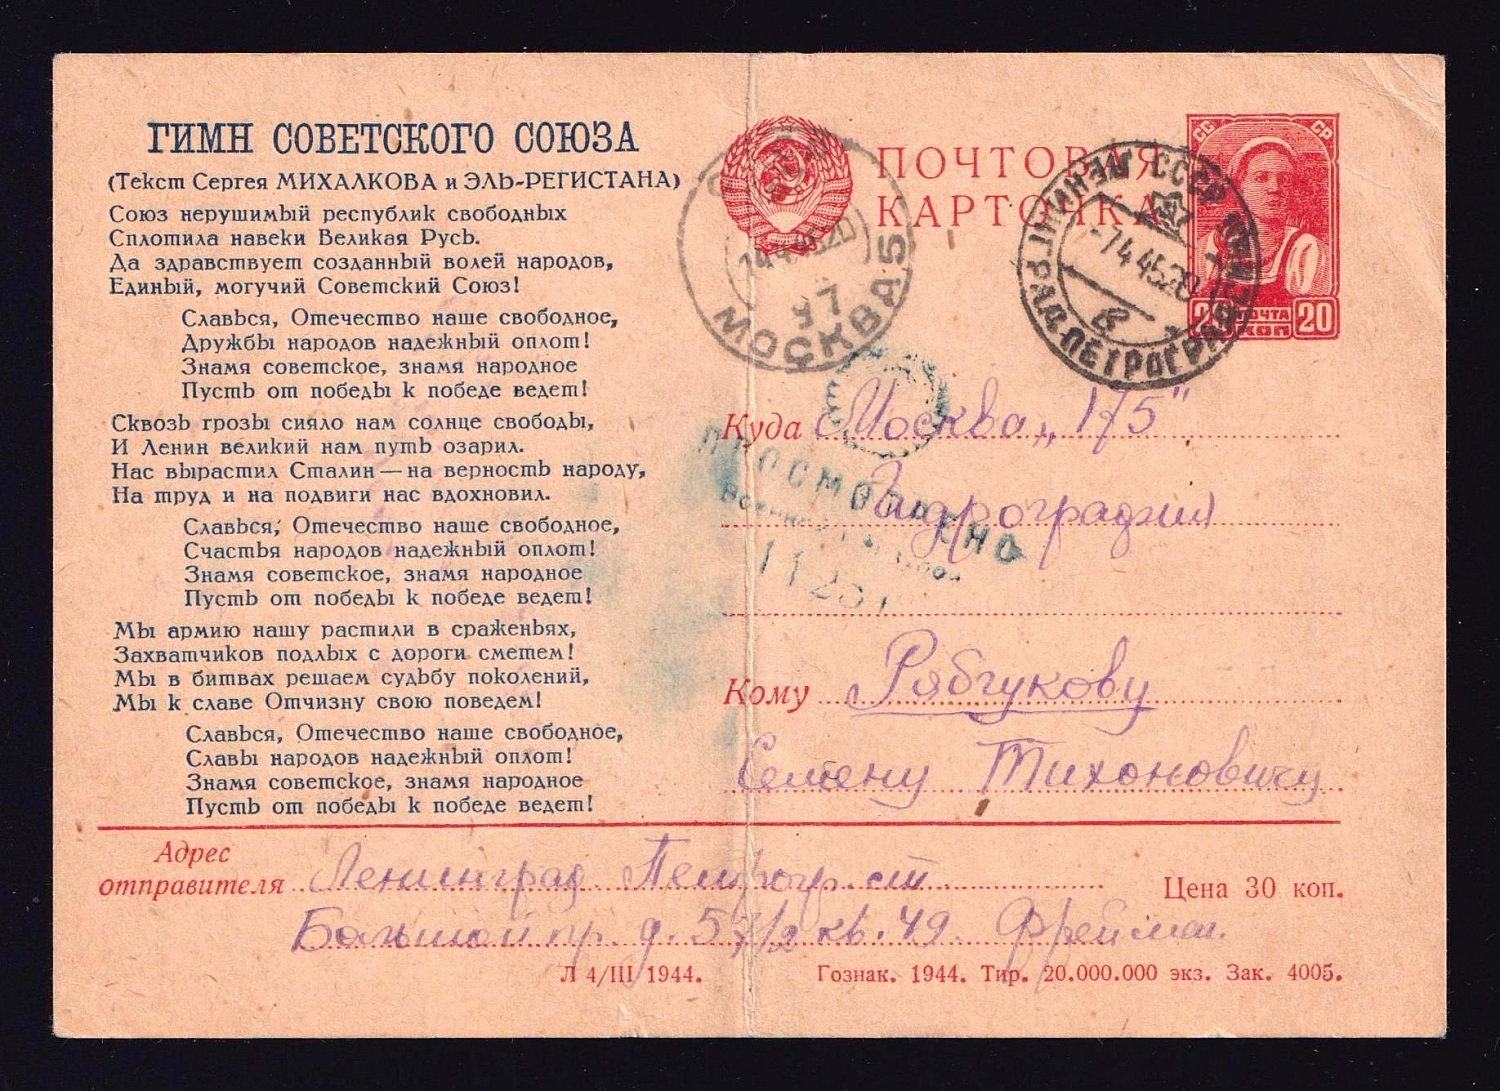 ГИМН СОВЕТСКОГО СОЮЗА
(Текст Сергея МИХАЛКОВА и ЭЛЬ-РЕГИСТАНА)
Союз нерушимый республик свободных
Сплотила навеки Великая Русь.
Да здравствует созданный волей народов,
Единый, могучий Советский Союз!
Славься, Отечество наше свободное,
Дружбы народов надежный оплот!
Знамя советское, знамя народное
Пусть от победы к победе ведет!
Сквозь грозы сияло нам солнце свободы,
И Ленин великий нам путь озарил.
Нас вырастил Сталин — на верность народу,
На труд и на подвиги нас вдохновил.
Славься, Отечество наше свободное,
Счастья народов надежный оплот!
Знамя советское, знамя народное
Пусть от победы к победе ведет!
Мы армию нашу растили в сраженьях,
Захватчиков подлых с дороги сметем!
Мы в битвах решаем судьбу поколений,
Мы к славе Отчизну свою поведем!
Славься, Отечество наше свободное,
Славы народов надежный оплот!
Знамя советское, знамя народное
Пусть от победы к победе ведет!
ПОЧТОВАЯ
КАРТОЧКА
СС СР
20 ПОЧТА 20
КОП
МОСКВА 5
97
ЛЕНИНГРАД ПЕТРОГРАД
СССР
-7.4.45.20
в
Куда Москва „175"
Гидрография
ПРОСМОТРЕНО
Военной Цензурой
1125
Кому Рябчукову
Семену Тихоновичу
Адрес
отправителя Ленинград Петрогр. ст
Большой пр. д. 57/2 кв. 49. Фрейман.
Цена 30 коп.
Л 4/III 1944.
Гознак. 1944. Тир. 20.000.000 экз. Зак. 4005.